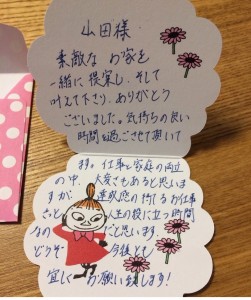 山田様
素敵なお家を
一緒に提案し、そして
叶えて下さり、ありがとう
ございました。気持ちの良い
時間を過ごさせて頂いて
ます。仕事と家庭の両立
の中、大変さもあると思いま
すが、達成感の持てるお仕事
きっと人生の役に立つ時間
なのだと思います。
どうぞ今後とも
宜しくお願い致します!